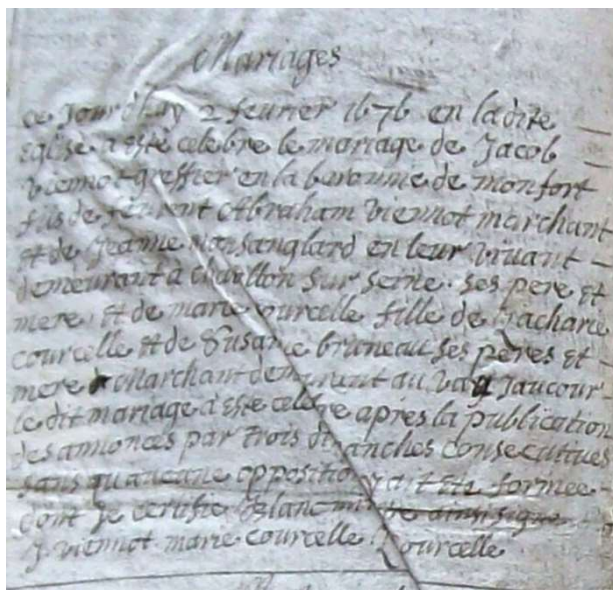 Mariages
ce Jourdhuy 2 fevrier 1676 en ladite
Eglise a esté celebre le mariage de Jacob
viennot greffier en la baronnie de monfort
fils de feu Abraham viennot marchant
et de Jeanne en leur vivant
demeurant a Chatillon sur seine ses pere et
mere et de marie courcelle fille de Zacharie
courcelle et de Susane bruneau ses peres et
mere Marchant demeurant au val Jaucour
le dit mariage a esté celebre apres la publication
des annonces par trois dimanches consecutives
sans qu aucune opposition ait ete formee
dont Je certifie Blanc ainsi signe
J. viennot marie courcelle Courcelle